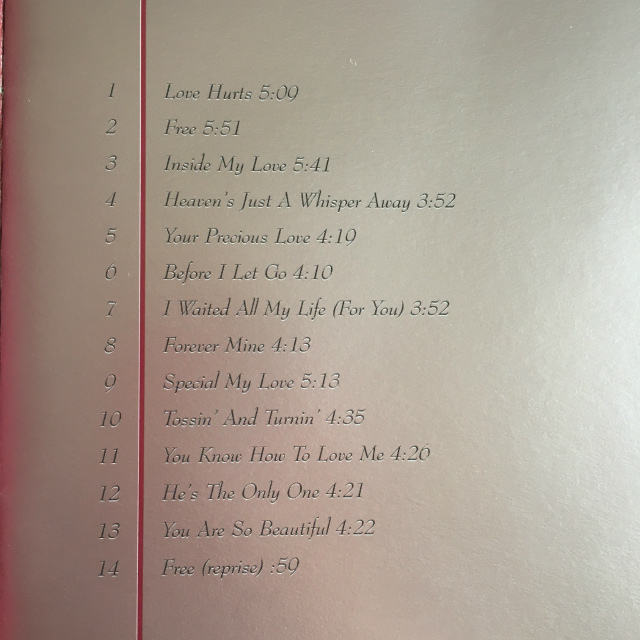 1 Love Hurts 5:09
2 Free 5:51
3 Inside My Love 5:41
4 Heaven's Just A Whisper Away 3:52
5 Your Precious Love 4:19
6 Before I Let Go 4:10
7 I Waited All My Life (For You) 3:52
8 Forever Mine 4:13
9 Special My Love 5:13
10 Tossin' And Turnin' 4:35
11 You Know How To Love Me 4:26
12 He's The Only One 4:21
13 You Are So Beautiful 4:22
14 Free (reprise) :59